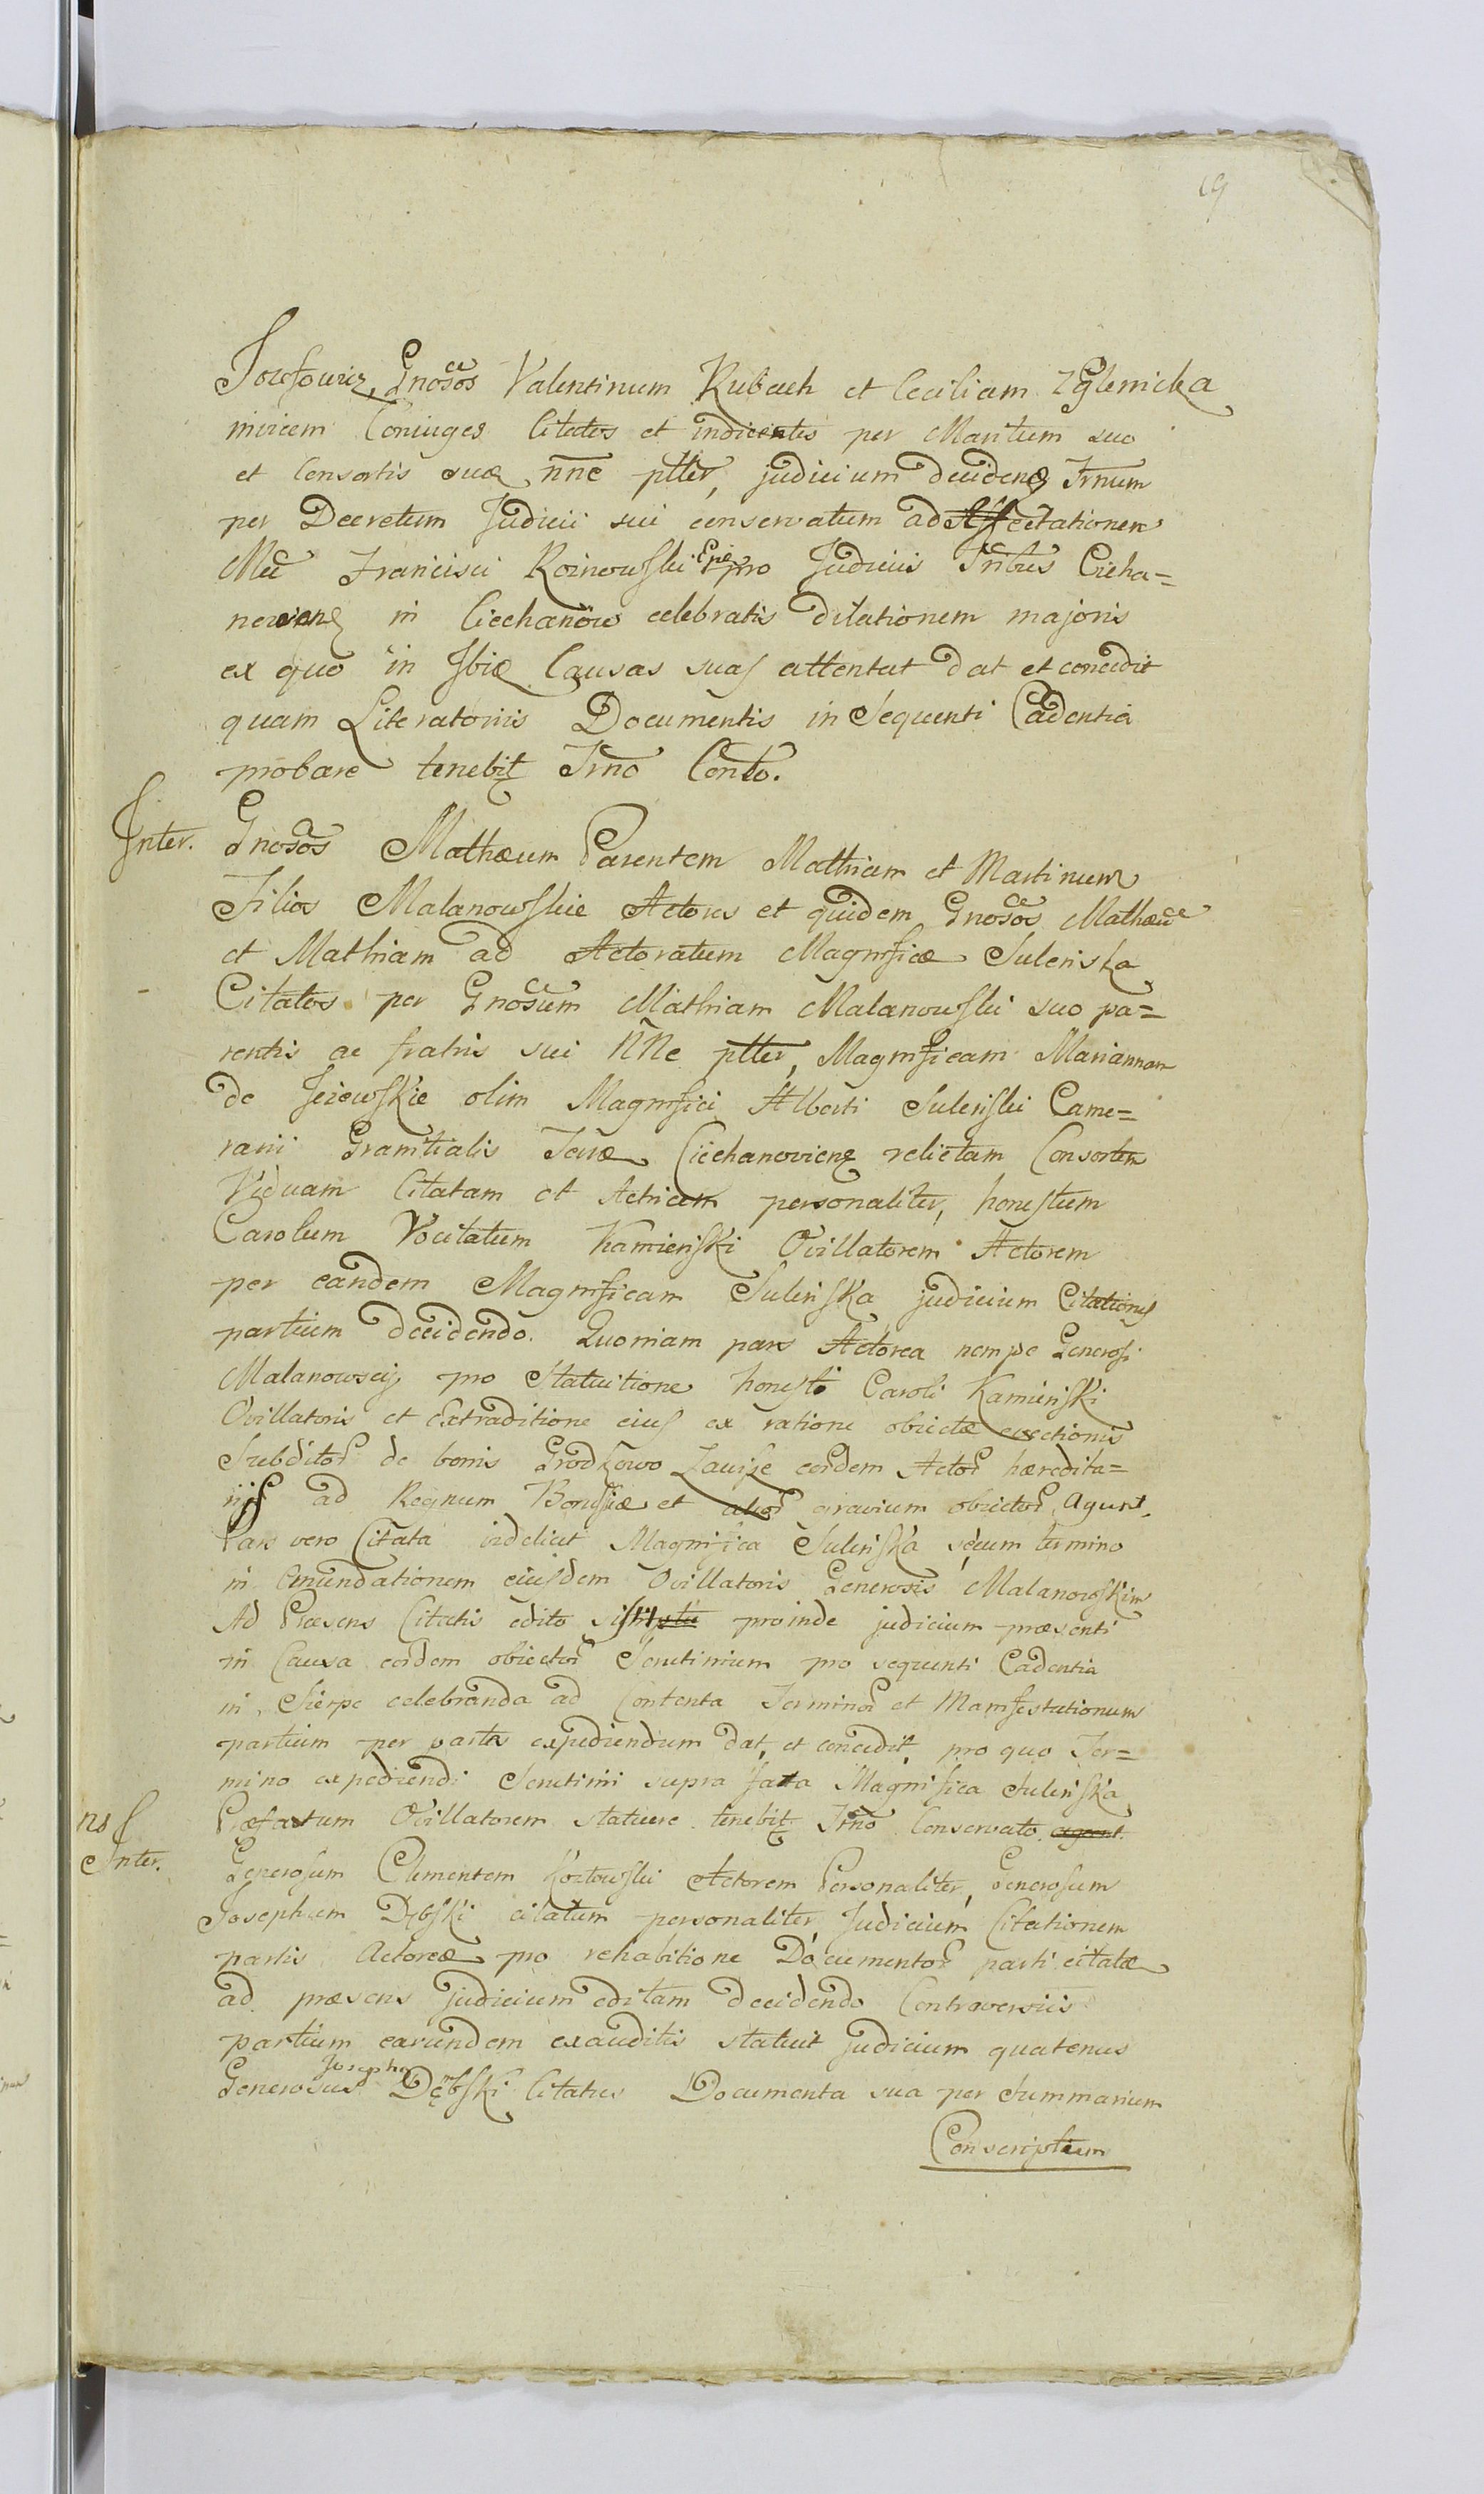 19
Gnosos Valentinum Rubach et Ceciliam Zglenicka
invicem Coniuges Citatos et indicentes per Maritum suo
et Consortis suæ nne ptter, judicium deciden Trnum
per Decretum Judicii sui conservatum ad Affectationem
Mci Francisci pro Judiciis Tribus Ciecha=
novien in Ciechanow celebratis dilationem majoris
ex quo in Causas suas attentat dat et concedit
quam Literatoriis Documentis in Sequenti Cadentia
probare tenebit Trno Conto.
Inter. Gnosos Mathæum Parentem Mathiam et Martinum
Filios Malanowskie Actores et quidem Gnosos Mathæum
et Mathiam ad Actoratum Magnificæ Suleriska
Citatos per Gnosum Mathiam Malanowski suo pa=
rentis ac fratris sui nne ptter, Magnificam Mariannam
de Jezewskie olim Magnifici Alberti Suleriski Came=
rarii Granitialis Terræ Ciechanovien relictam Consortem
Viduam Citatam et Actricem personaliter, honestum
Carolum Vocitatum Kamieński Ovillatorem Actorem
per eandem Magnificam Suleriska judicium Citationes
partium decidendo. Quoniam pars Actorea nempe Generosi
Malanowscy pro Statuitione honesti Caroli Kamieński
Ovillatoris et extraditione eius ex ratione obiectæ evectionis
Subditor de bonis Grodkowo Zawisze eordem Actor hæredita=
riis ad Regnum Borussiæ et alior gravium obiector Agunt.
Pars vero Citata videlicet Magnifica Suleriska secum termino
in Emundationem eiusdem Ovillatoris Generosis Malanowskim
Ad Præsens Citatis edito proinde judicium præsenti
in Causa eordem obiector Scrutinium pro sequenti Cadentia
in Sierpc celebranda ad Contenta Terminor et Manifestationum
partium per partes expediendum dat, et concedit, pro quo Ter=
mino expediendi Scrutinii supra fata Magnifica Suleriska
Præfatum Ovillatorem statuere tenebit Trno Conservato agent.
ns
Inter. Generosum Clementem Kozłowski Actorem Personaliter, Generosum
Josephum Dębski citatum personaliter Judicium Citationem
partis Actoreæ pro rehabitione Documentor parti citatæ
ad præsens judicium editam decidendo Controversiis
partium earundem exauditis statuit judicium quatenus
Generosus Josephus Dębski Citatus Documenta sua per Summarium
Conscriptum